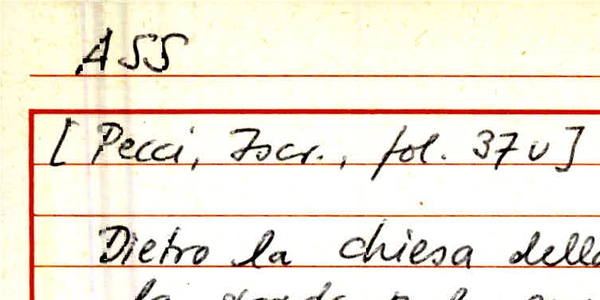 ASS
[Pecci, Iscr., fol. 37v]
Dietro la chiesa della
la